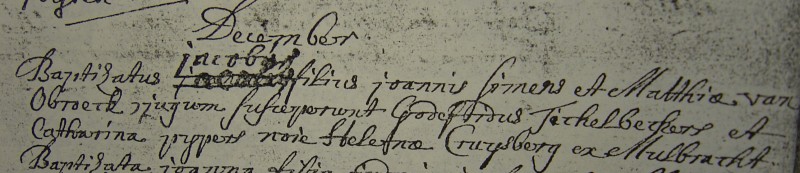 December
jacobus
Baptizatus filius joannis simens et Matthiæ van
Obroeck susceperunt Godefridus Tichelbeckers et
Catharina pypers noie Helenæ Cruysberg ex Mulbracht.
Baptizata joanna filia